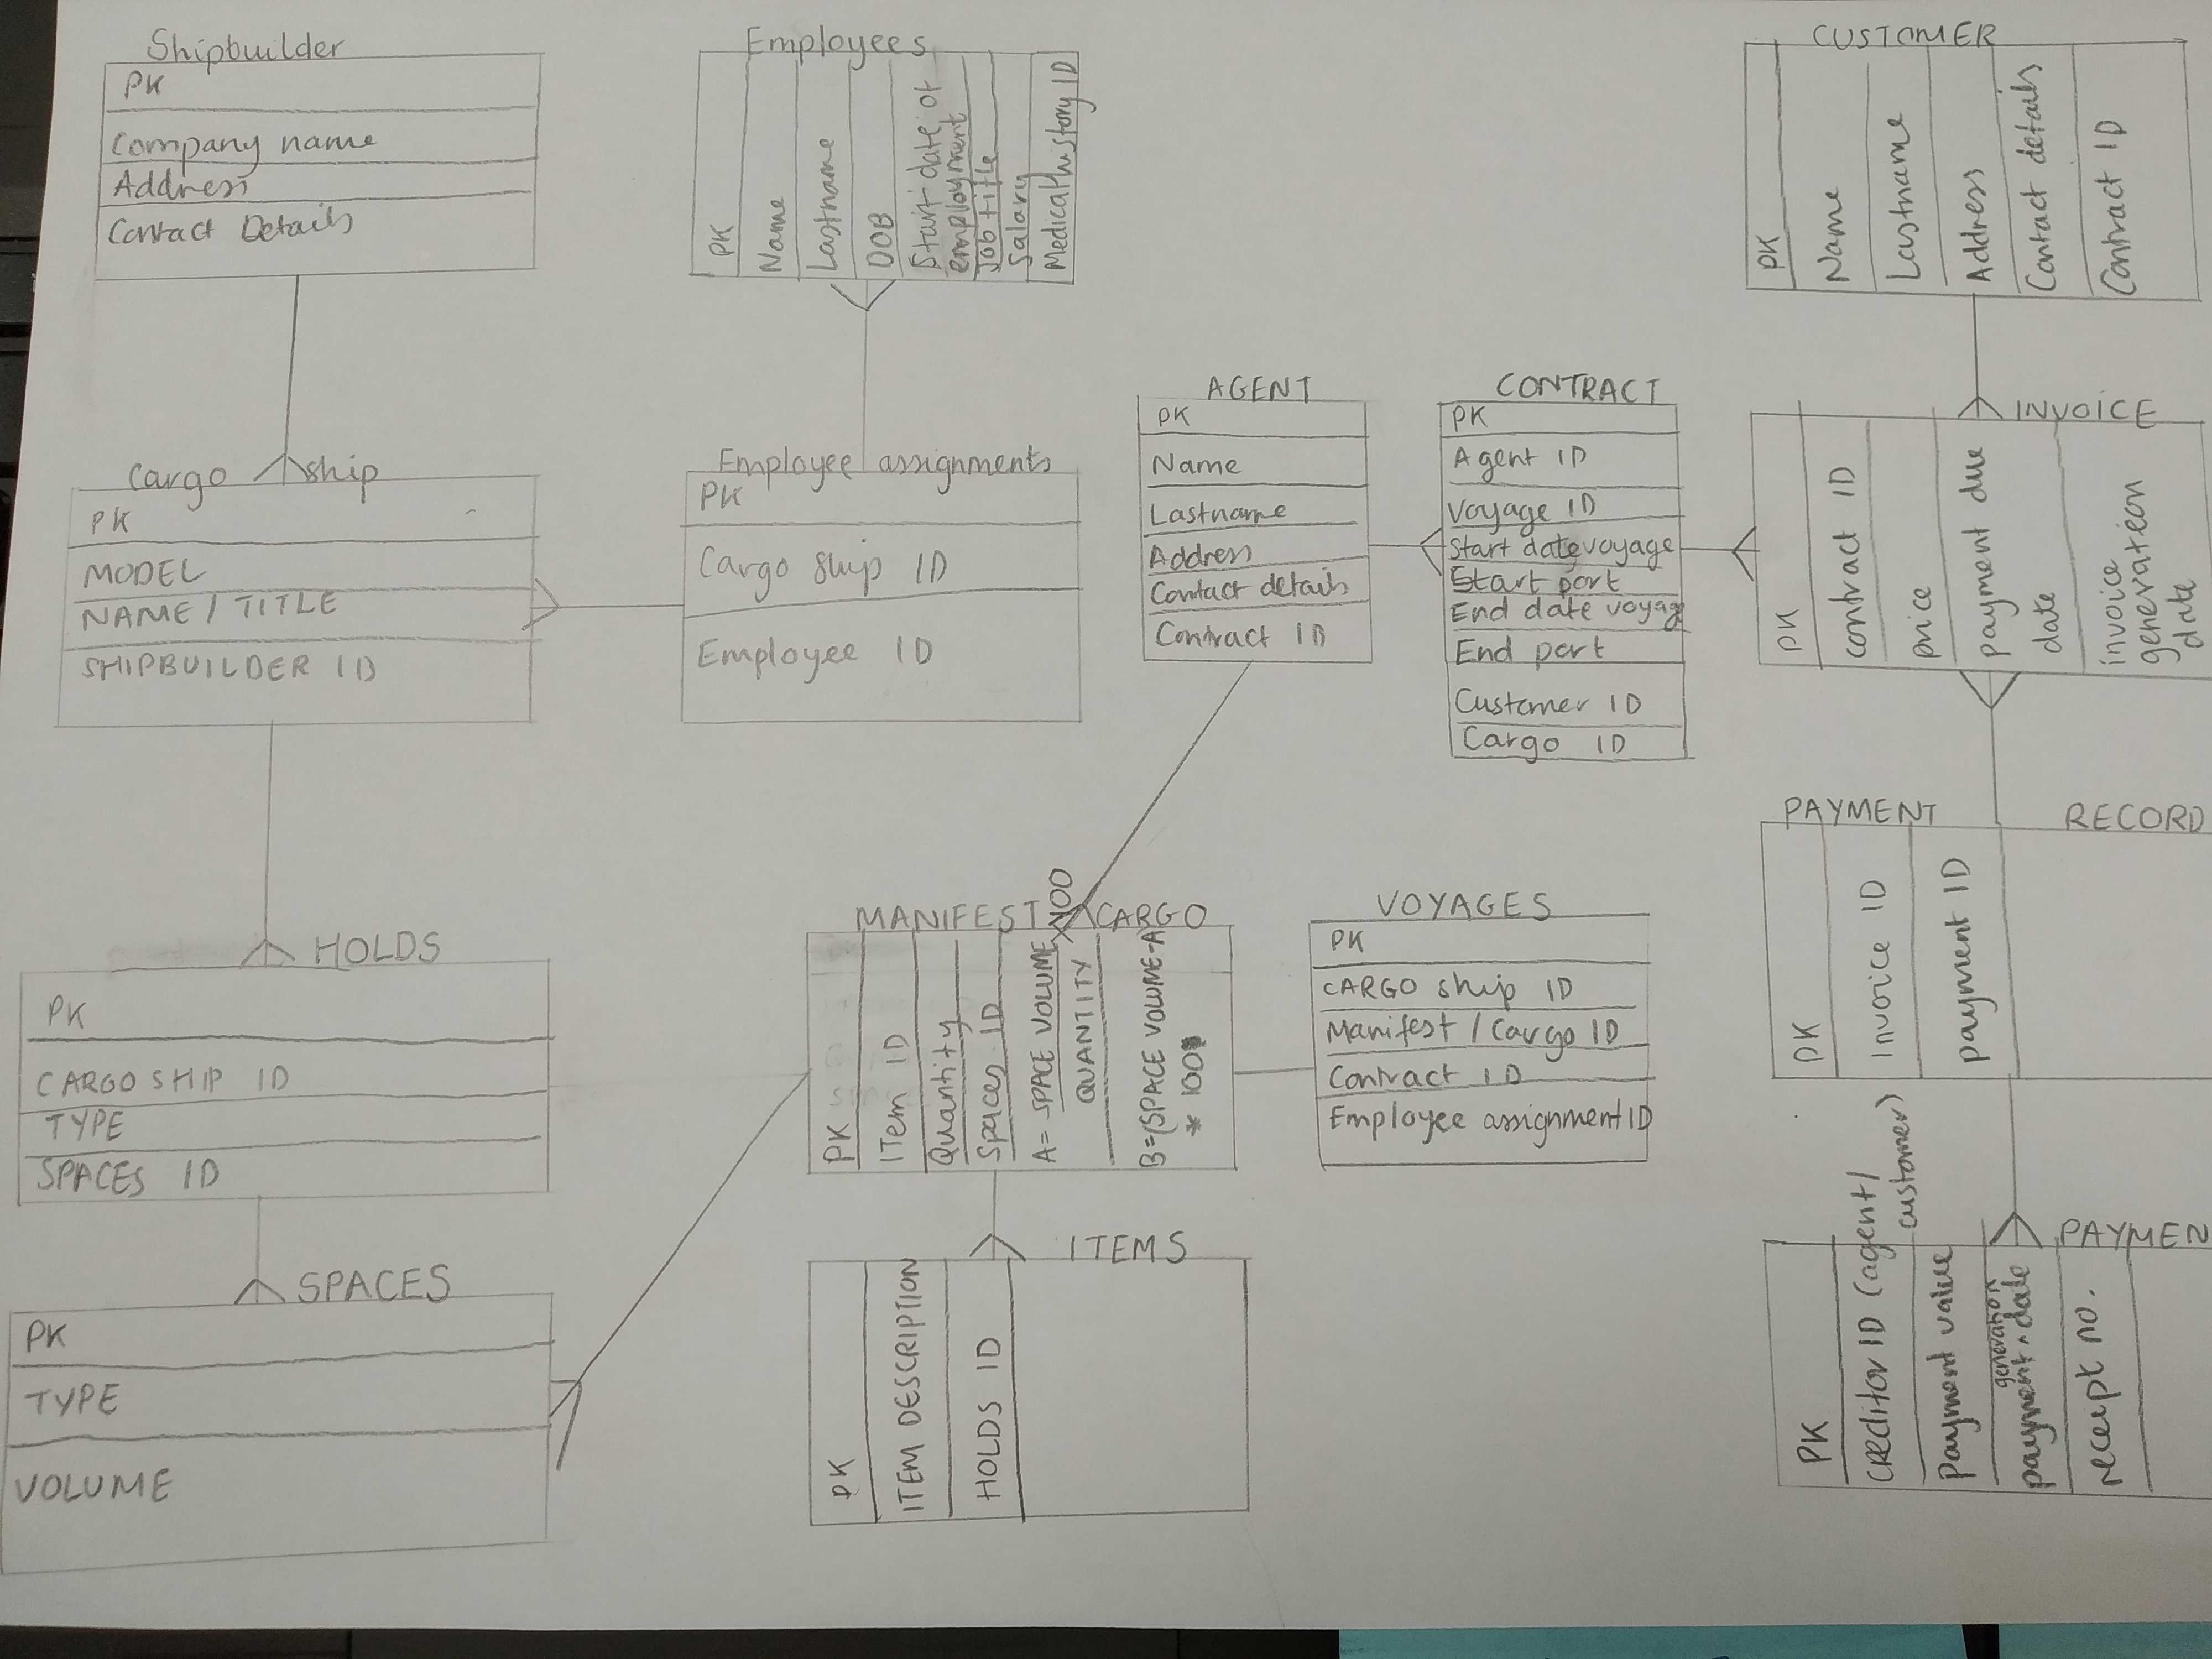 Shipbuilder
PK
Company name
Address
Contact Details
Employees
PK
Name
Lastname
DOB
Start date of
employment
Job title
Salary
Medical history ID
CUSTOMER
PK
Name
Lastname
Address
Contact details
Contract ID
Cargo ship
PK
MODEL
NAME / TITLE
SHIPBUILDER ID
Employee assignments
PK
Cargo ship ID
Employee ID
AGENT
PK
Name
Lastname
Address
Contact details
Contract ID
CONTRACT
PK
Agent ID
Voyage ID
Start date voyage
Start port
End date voyag
End port
Customer ID
Cargo ID
INVOICE
PK
contract ID
price
payment due
date
invoice
generation
date
HOLDS
PK
CARGO SHIP ID
TYPE
SPACES ID
MANIFEST CARGO
PK
ITem ID
Quantity
Spaces ID
A= SPACE VOLUME x100
QUANTITY
B=(SPACE VOLUME-A)
* 100
VOYAGES
PK
CARGO ship ID
Manifest / Cargo ID
Contract ID
Employee assignment ID
PAYMENT RECORD
PK
Invoice ID
payment ID
SPACES
PK
TYPE
VOLUME
ITEMS
PK
ITEM DESCRIPTION
HOLDS ID
PAYMEN
PK
CREditor ID (agent/
customer)
Payment value
generation
payment ^ date
receipt no.